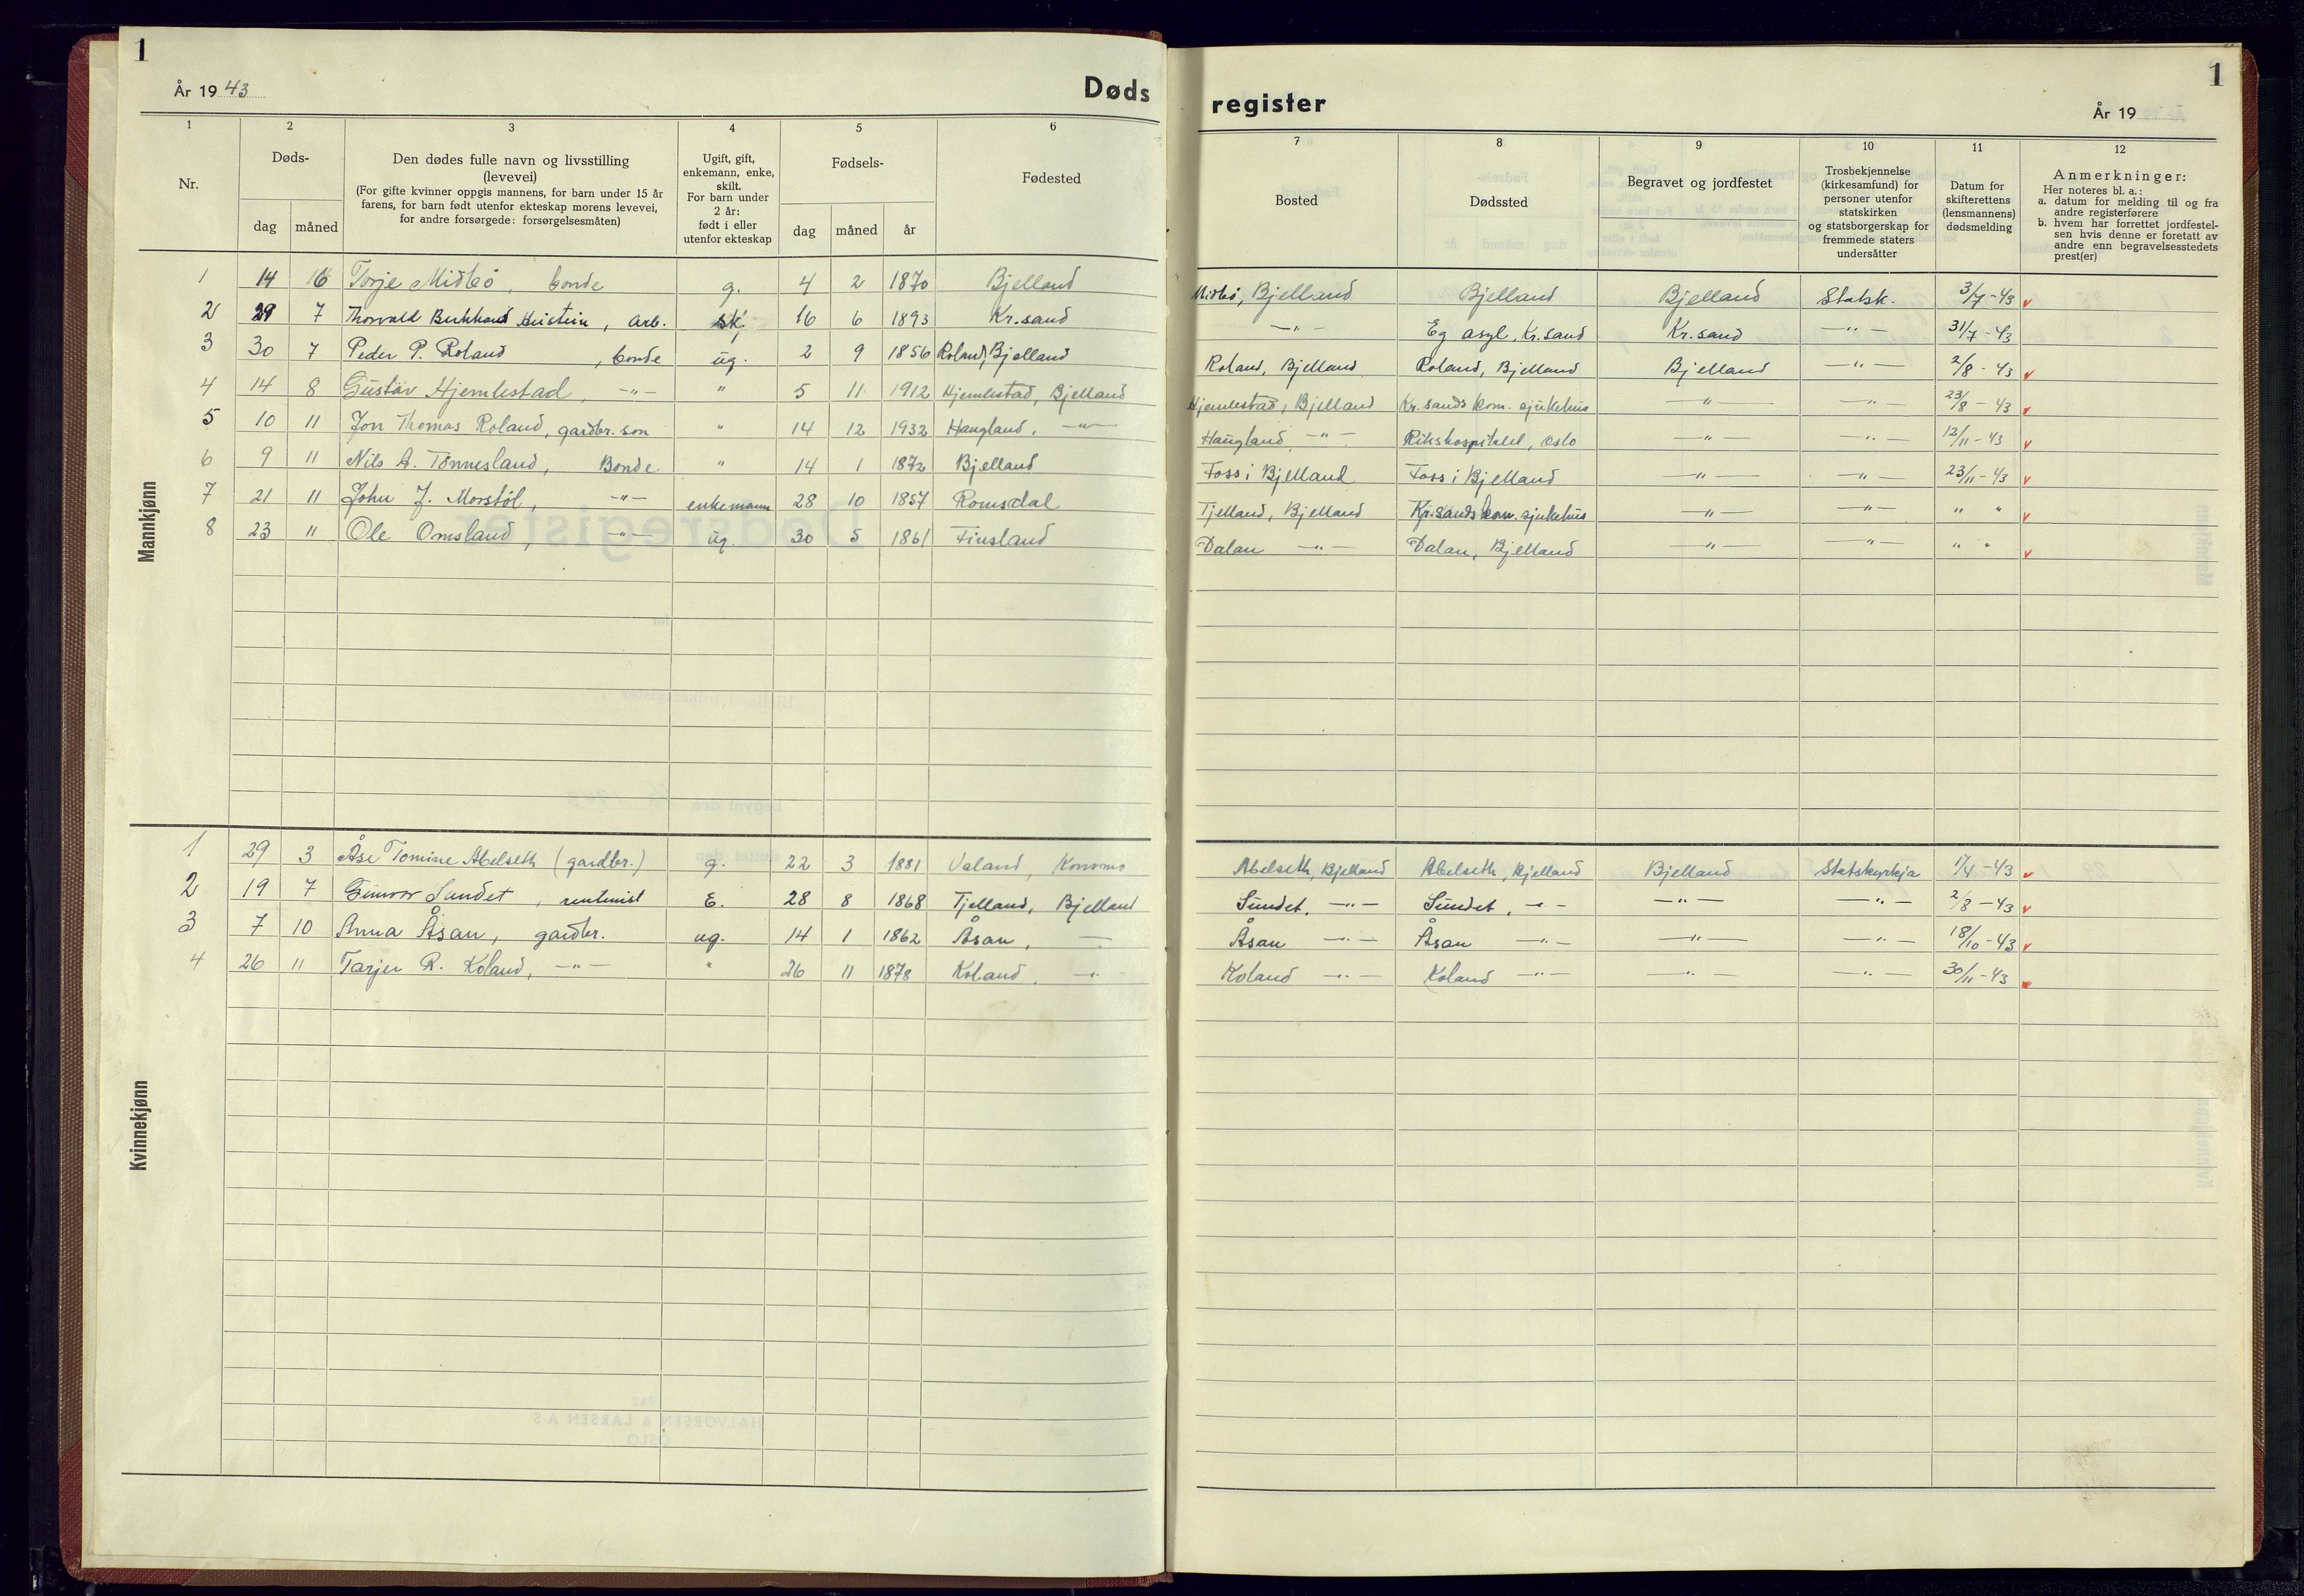 1
1
År 1943
Døds
register
År 19
1 2 3 4 5 6
7 8 9 10 11 12
Nr.
Døds-
dag måned
Den dødes fulle navn og livsstilling
(levevei)
(For gifte kvinner oppgis mannens, for barn under 15 år
farens, for barn født utenfor ekteskap morens levevei,
for andre forsørgede: forsørgelsesmåten)
Ugift, gift,
enkemann, enke,
skilt.
For barn under
2 år:
født i eller
utenfor ekteskap
Fødsels-
dag måned år
Fødested
Bosted
Dødssted
Begravet og jordfestet
Trosbekjennelse
(kirkesamfund) for
personer utenfor
statskirken
og statsborgerskap for
fremmede staters
undersåtter
Datum for
skifterettens
(lensmannens)
dødsmelding
Anmerkninger:
Her noteres bl. a.:
a. datum for melding til og fra
andre registerførere
b. hvem har forrettet jordfestel-
sen hvis denne er foretatt av
andre enn begravelsesstedets
prest(er)
Mannkjønn
1 14 6 Torje Midbö, bonde g. 4 2 1870 Bjelland Midbö, Bjelland Bjelland Bjelland Statsk. 3/7-43 v
2 29 7 Thorvald, arb. sk. 16 6 1893 Kr.sand —"— Eg asyl, Kr.sand Kr.sand —"— 31/7-43
3 30 7 Peder P. Roland, bonde ug. 2 9 1856 Roland, Bjelland Roland, Bjelland Roland, Bjelland Bjelland —"— 2/8-43 v
4 14 8 Gustav Hjemlestad, —"— " 5 11 1912 Hjemlestad, Bjelland Hjemlestad, Bjelland Kr.sands kom. sjukehus —"— —"— 23/8-43 v
5 10 11 Jon Thomas Roland, gardbr. son " 14 12 1932 Haugland, —"— Haugland, —"— Rikshospitalet, Oslo —"— —"— 12/11-43 v
6 9 11 Nils A. Tönnesland, Bonde " 14 1 1872 Bjelland Foss i Bjelland Foss i Bjelland —"— —"— 23/11-43 v
7 21 11 John J. Morstöl, —"— enkemann 28 10 1857 Romsdal Tjelland, Bjelland Kr.sands kom. sjukehus —"— —"— " " v
8 23 11 Ole Omsland, —"— ug. 30 5 1861 Finsland Dalan —"— Dalan, Bjelland —"— —"— " " v
Kvinnekjønn
1 29 3 Åse Tomine Abelseth (gardbr.) g. 22 3 1881 Valand, Konsmo Abelseth, Bjelland Abelseth, Bjelland Bjelland Statskyrkja 1/4-43 v
2 19 7 Gunvor Sundet, rentenist E. 28 8 1868 Tjelland, Bjelland Sundet, —"— Sundet, —"— —"— —"— 2/8-43 v
3 7 10 Anna Åsan, gardbr. ug. 14 1 1862 Åsan, — Åsan —"— Åsan —"— —"— —"— 18/10-43 v
4 26 11 Tarjer R. Roland, —"— " 26 11 1878 Roland, —"— Roland —"— Roland —"— —"— —"— 30/11-43